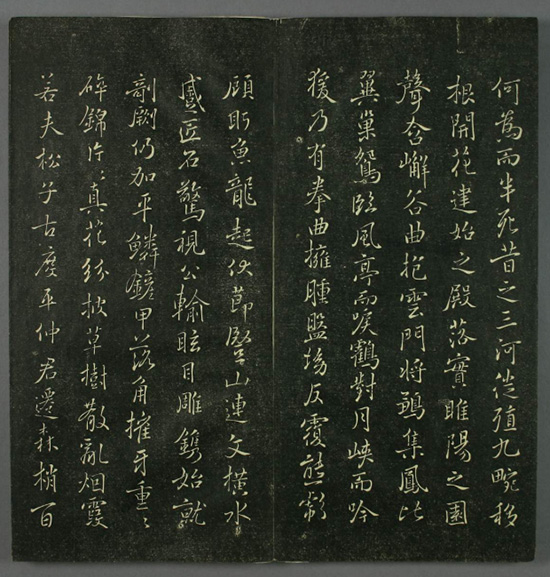 何為而半死昔之三河徙殖九畹移
根開花建始之殿落實睢陽之園
聲含嶰谷曲抱雲門將鶵集鳳比
翼巢鴛臨風亭而唳鶴對月峽而吟
猨乃有拳曲擁腫盤坳反覆熊彪
顧盼魚龍起伏節豎山連文橫水
蹙匠石驚視公輸眩目雕鐫始就
剞劂仍加平鱗鏟甲落角摧牙重〻
碎錦片〻真花紛披草樹散亂烟霞
若夫松子古度平仲君遷森梢百